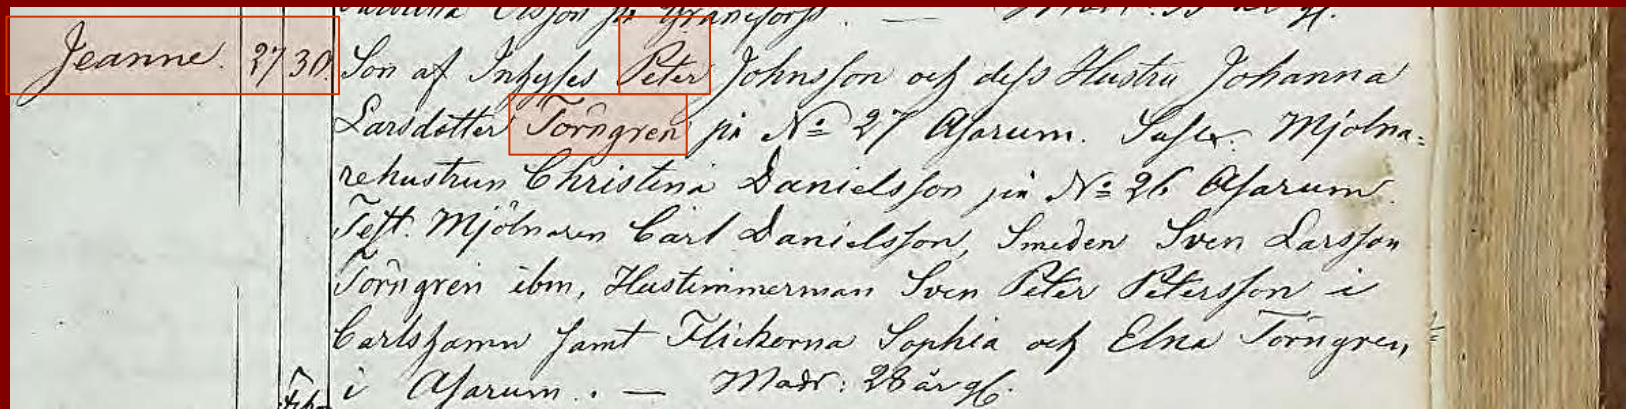 Carolina Olsson på Granefors. — Modr: 33 år gl.
Jeanne. 27 30. Son af Inhyses Peter Johnsson och dess Hustru Johanna
Larsdotter Törngren på No 27 Asarum. Suscr. Mjölna-
rehustrun Christina Danielsson på No 26 Asarum.
Test. Mjölnaren Carl Danielsson, Smeden Sven Larsson
Törngren ibm, Hustimmerman Sven Peter Petersson i
Carlshamn samt Flickorna Sophia och Elna Törngren,
i Asarum. — Modr: 28 år gl.